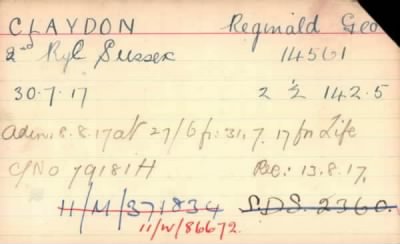 CLAYDON Reginald Geo
2nd Ryl Sussex 14561
30.7.17 2 ½ 142.5
Adm. 8.8.17 at 27/6 fr: 31.7.17 for Life
C/No 79181H Rec: 13.8.17.
11/M/371834 S.D.S. 2360.
11/W/86672.